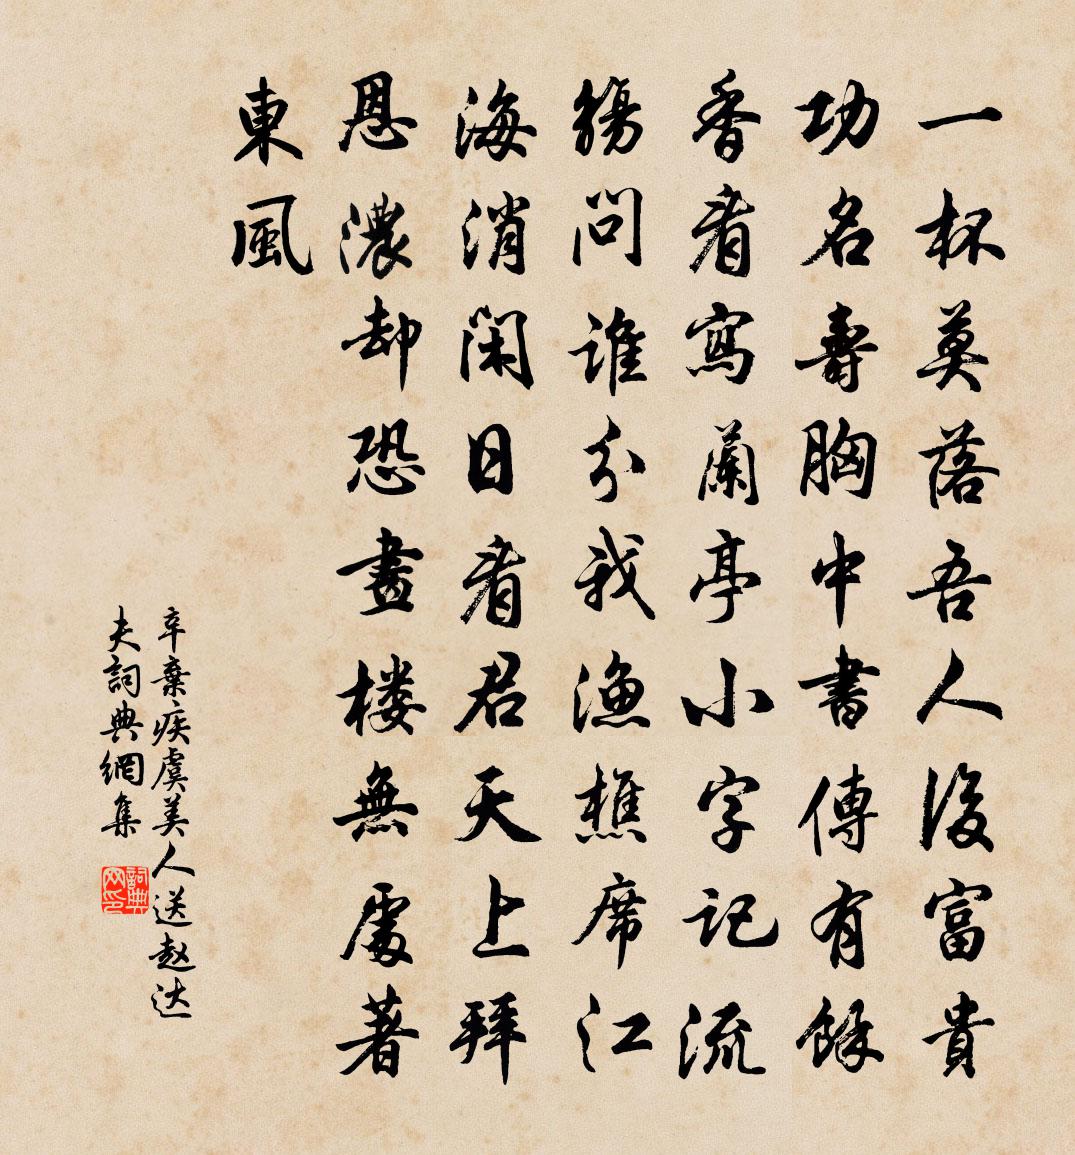 一杯莫落吾人後富貴
功名壽胸中書傳有餘
香看寫蘭亭小字記流
觴問誰分我漁樵席江
海消閑日看君天上拜
恩濃却恐畫楼無處著
東風
辛棄疾虞美人送赵达
夫詞典網集
詞典
网印